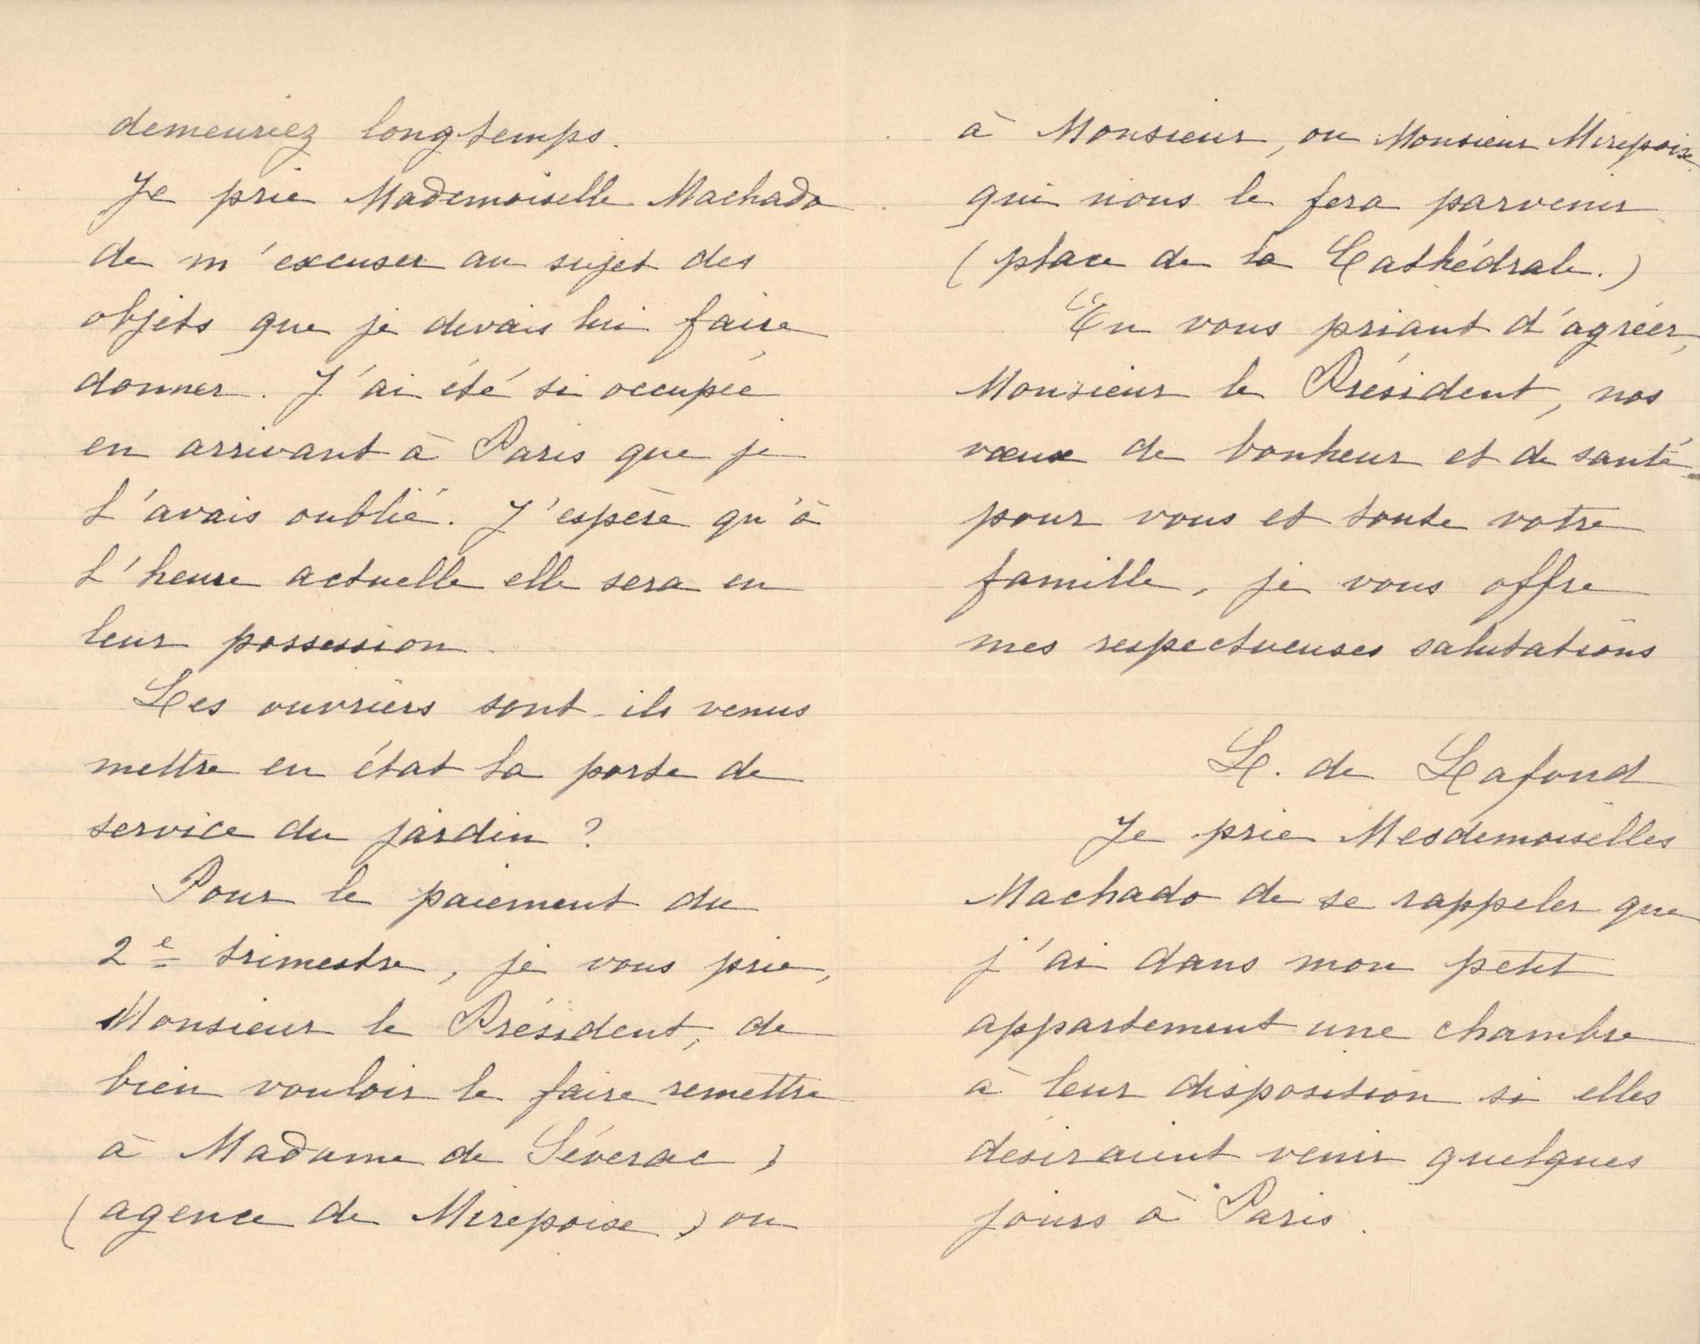 demeuriez longtemps.
Je prie Mademoiselle Machado
de m'excuser au sujet des
objets que je devais lui faire
donner. J'ai été si occupée
en arrivant à Paris que je
l'avais oublié. J'espère qu'à
l'heure actuelle elle sera en
leur possession.
Les ouvriers sont-ils venus
mettre en état la porte de
service du jardin ?
Pour le paiement du
2e trimestre, je vous prie,
Monsieur le Président, de
bien vouloir le faire remettre
à Madame de Séverac,
(agence de Mirepoise) ou
à Monsieur, ou Monsieur Mirepoise
qui nous le fera parvenir
(place de la Cathédrale.)
En vous priant d'agréer,
Monsieur le Président, nos
vœux de bonheur et de santé
pour vous et toute votre
famille, je vous offre
mes respectueuses salutations
L. de Lafond
Je prie Mesdemoiselles
Machado de se rappeler que
j'ai dans mon petit
appartement une chambre
à leur disposition si elles
désiraient venir quelques
jours à Paris.